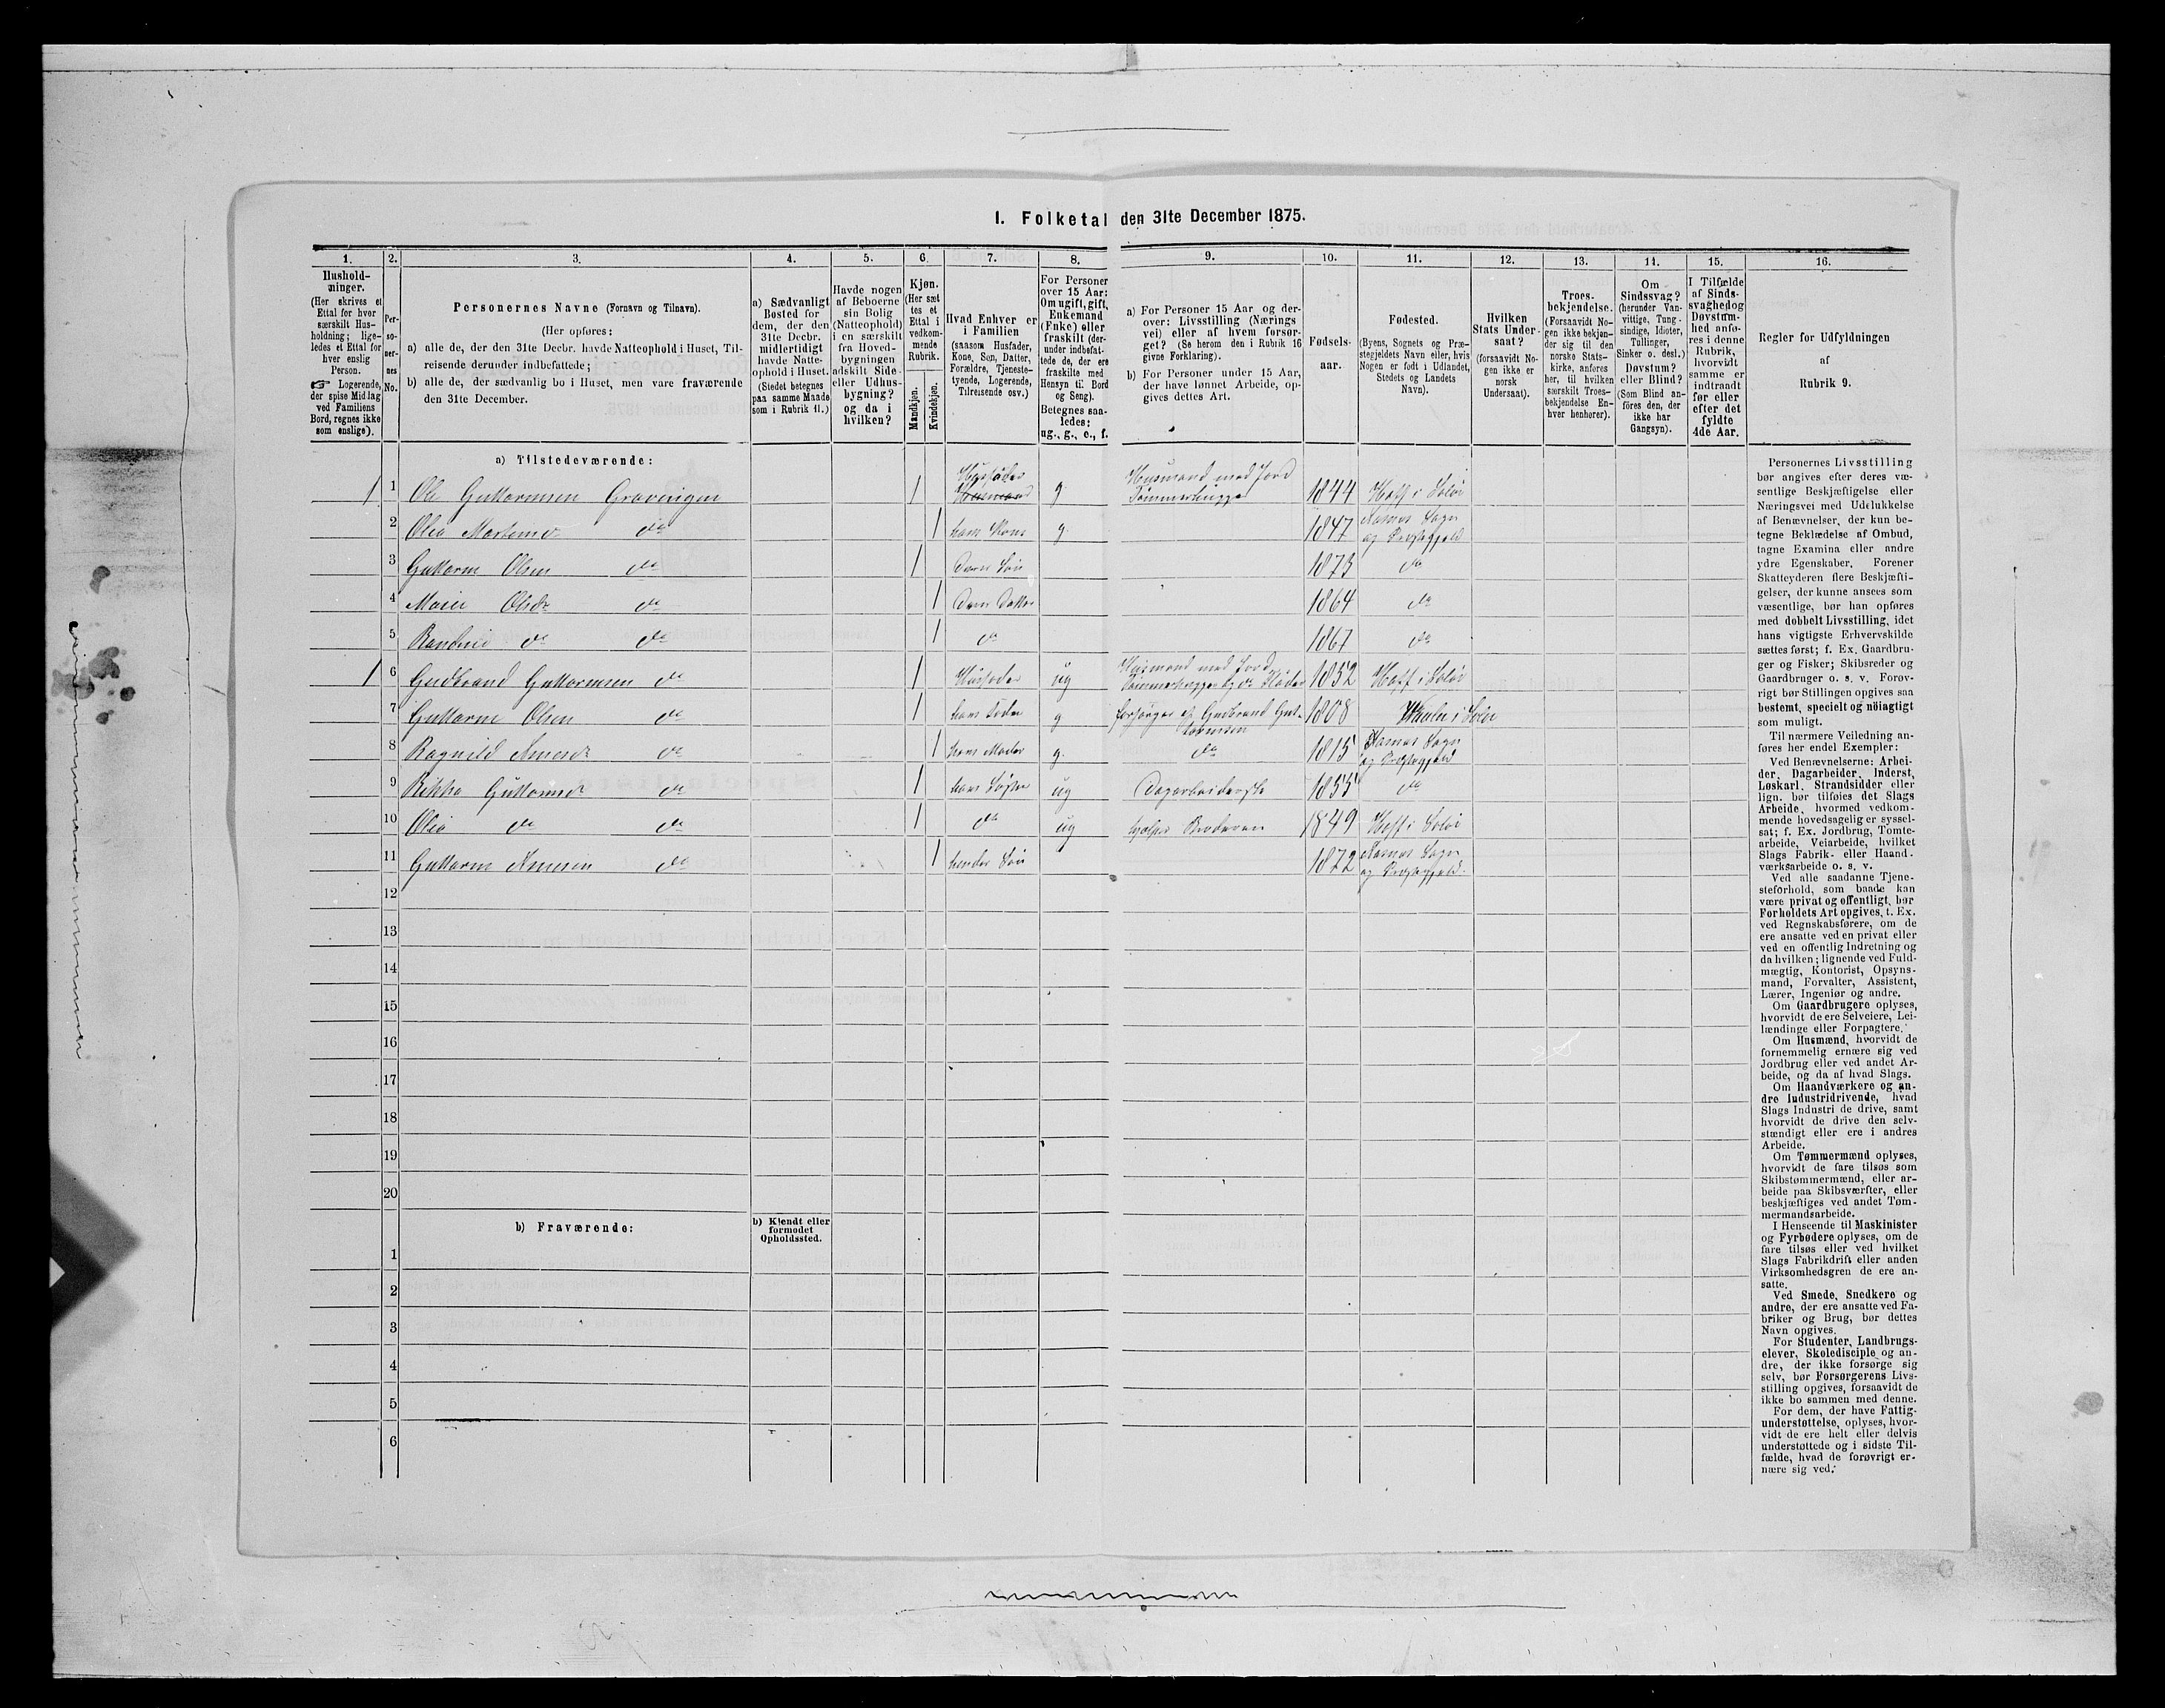 I. Folketal den 31te December 1875.
1. 2. 3. 4. 5. 6. 7. 8. 9. 10. 11. 12. 13. 14. 15. 16.
Hushold-
ninger.
(Her skrives et
Ettal for hver
særskilt Hus-
holdning; lige-
ledes et Ettal for
hver enslig
Person.
☞ Logerende,
der spise Middag
ved Familiens
Bord, regnes ikke
som enslige).
Per-
so-
ner-
nes
No.
Personernes Navne (Fornavn og Tilnavn).
(Her opføres:
a) alle de, der den 31te Decbr. havde Natteophold i Huset, Til-
reisende derunder indbefattede;
b) alle de, der sædvanlig bo i Huset, men vare fraværende
den 31te December.
a) Sædvanligt
Bosted for
dem, der den
31te Decbr.
midlertidigt
havde Natte-
ophold i Huset.
(Stedet betegnes
paa samme Maade
som i Rubrik 11.)
Havde nogen
af Beboerne
sin Bolig
(Natteophold)
i en særskilt
fra Hoved-
bygningen
adskilt Side-
eller Udhus-
bygning?
og da i
hvilken?
Kjøn.
(Her sæt
tes et
Ettal i
vedkom-
mende
Rubrik.
Mandkjøn.
Kvindekjøn.
Hvad Enhver er
i Familien
(saasom Husfader,
Kone, Søn, Datter,
Forældre, Tjeneste-
tyende, Logerende,
Tilreisende osv.)
For Personer
over 15 Aar:
Om ugift, gift,
Enkemand
(Enke) eller
fraskilt (der-
under indbefat-
tede de, der ere
fraskilte med
Hensyn til Bord
og Seng).
Betegnes saa-
ledes:
ug., g., e., f.
a) For Personer 15 Aar og der-
over: Livsstilling (Nærings
vei) eller af hvem forsør-
get? (Se herom den i Rubrik 16
givne Forklaring).
b) For Personer under 15 Aar,
der have lønnet Arbeide, op-
gives dettes Art.
Fødsels-
aar.
Fødested.
(Byens, Sognets og Præ-
stegjeldets Navn eller, hvis
Nogen er født i Udlandet,
Stedets og Landets
Navn).
Hvilken
Stats Under-
saat?
(forsaavidt No-
gen ikke er
norsk
Undersaat).
Troes-
bekjendelse.
(Forsaavidt No-
gen ikke bekjen-
der sig til den
norske Stats-
kirke, anføres
her, til hvilken
særskilt Troes-
bekjendelse En-
hver henhører).
Om
Sindssvag?
(herunder Van-
vittige, Tung-
sindige, Idioter,
Tullinger,
Sinker o. desl.)
Døvstum?
eller Blind?
(Som Blind an-
føres den, der
ikke har
Gangsyn).
I Tilfælde
af Sinds-
svaghed og
Døvstum-
hed anfø-
res i denne
Rubrik,
hvorvidt
samme er
indtraadt
før eller
efter det
fyldte
4de Aar.
Regler for Udfyldningen
af
Rubrik 9.
a) Tilstedeværende:
1 1 Ole Guttormsen Gravingen 1 Husfader Husmand g Husmand med Jord Tømmerhugger 1844 Hoff i Solør
2 Olia Martens do 1 hans Kone g 1847 Aasnes Sogn og Præstegjeld
3 Guttorm Olsen do 1 Deres Søn 1873 do
4 Marie Olsdr do 1 Deres Datter 1864 do
5 Randine do do 1 do 1867 do
1 6 Gudbrand Guttormsen do 1 Husfader ug Husmand med Jord Tømmerhugger og Fløder 1852 Hoff i Solør
7 Guttorm Olsen do 1 hans Fader g forsørges af Gudbrand Guttormsen 1808 Vaaler i Solør
8 Ragnild Arnesdr do 1 hans Moder g. do 1815 Aasnes Sogn og Præstegjeld
9 Rikka Guttormsdr do 1 hans Søster ug Dagarbeiderske 1855 do
10 Olia do do 1 do ug hjælper Broderen 1849 Hoff i Solør
11 Guttorm Arnesen do 1 hendes Søn 1872 Aasnes Sogn og Præstegjeld.
12
13
14
15
16
17
18
19
20
b) Fraværende:
b) Kjendt eller
formodet
Opholdssted.
1
2
3
4
5
6
Personernes Livsstilling
bør angives efter deres væ-
sentlige Beskjæftigelse eller
Næringsvei med Udelukkelse
af Benævnelser, der kun be-
tegne Beklædelse af Ombud,
tagne Examina eller andre
ydre Egenskaber. Forener
Skatteyderen flere Beskjæfti-
gelser, der kunne ansees som
væsentlige, bør han opføres
med dobbelt Livsstilling, idet
hans vigtigste Erhvervskilde
sættes først; f. Ex. Gaardbru-
ger og Fisker; Skibsreder og
Gaardbruger o. s. v. Forøv-
rigt bør Stillingen opgives saa
bestemt, specielt og nøiagtigt
som muligt.
Til nærmere Veiledning an-
føres her endel Exempler:
Ved Benævnelserne: Arbei-
der, Dagarbeider, Inderst,
Løskarl, Strandsidder eller
lign. bør tilføies det Slags
Arbeide, hvormed vedkom-
mende hovedsagelig er syssel-
sat; f. Ex. Jordbrug, Tomte-
arbeide, Veiarbeide, hvilket
Slags Fabrik- eller Haand-
værksarbeide o. s. v.
Ved alle saadanne Tjene-
steforhold, som baade kan
være privat og offentligt, bør
Forholdets Art opgives, t. Ex.
ved Regnskabsførere, om de
ere ansatte ved en privat eller
ved en offentlig Indretning og
da hvilken; lignende ved Fuld-
mægtig, Kontorist, Opsyns-
mand, Forvalter, Assistent,
Lærer, Ingeniør og andre.
Om Gaardbrugere oplyses,
hvorvidt de ere Selveiere, Lei-
lændinge eller Forpagtere.
Om Husmænd, hvorvidt de
fornemmelig ernære sig ved
Jordbrug eller ved andet Ar-
beide, og da af hvad Slags.
Om Haandværkere og an-
dre Industridrivende, hvad
Slags Industri de drive, samt
hvorvidt de drive den selv-
stændigt eller ere i andres
Arbeide.
Om Tømmermænd oplyses,
hvorvidt de fare tilsøs som
Skibstømmermænd, eller ar-
beide paa Skibsværfter, eller
beskjæftiges ved andet Tøm-
mermandsarbeide.
I Henseende til Maskinister
og Fyrbødere oplyses, om de
fare tilsøs eller ved hvilket
Slags Fabrikdrift eller anden
Virksomhedsgren de ere an-
satte.
Ved Smede, Snedkere og
andre, der ere ansatte ved Fa-
briker og Brug, bør dettes
Navn opgives.
For Studenter, Landbrugs-
elever, Skoledisciple og an-
dre, der ikke forsørge sig
selv, bør Forsørgerens Livs-
stilling opgives, forsaavidt de
ikke bo sammen med denne.
For dem, der have Fattig-
understøttelse, oplyses, hvor-
vidt de ere helt eller delvis
understøttede og i sidste Til-
fælde, hvad de forøvrigt er-
nære sig ved.